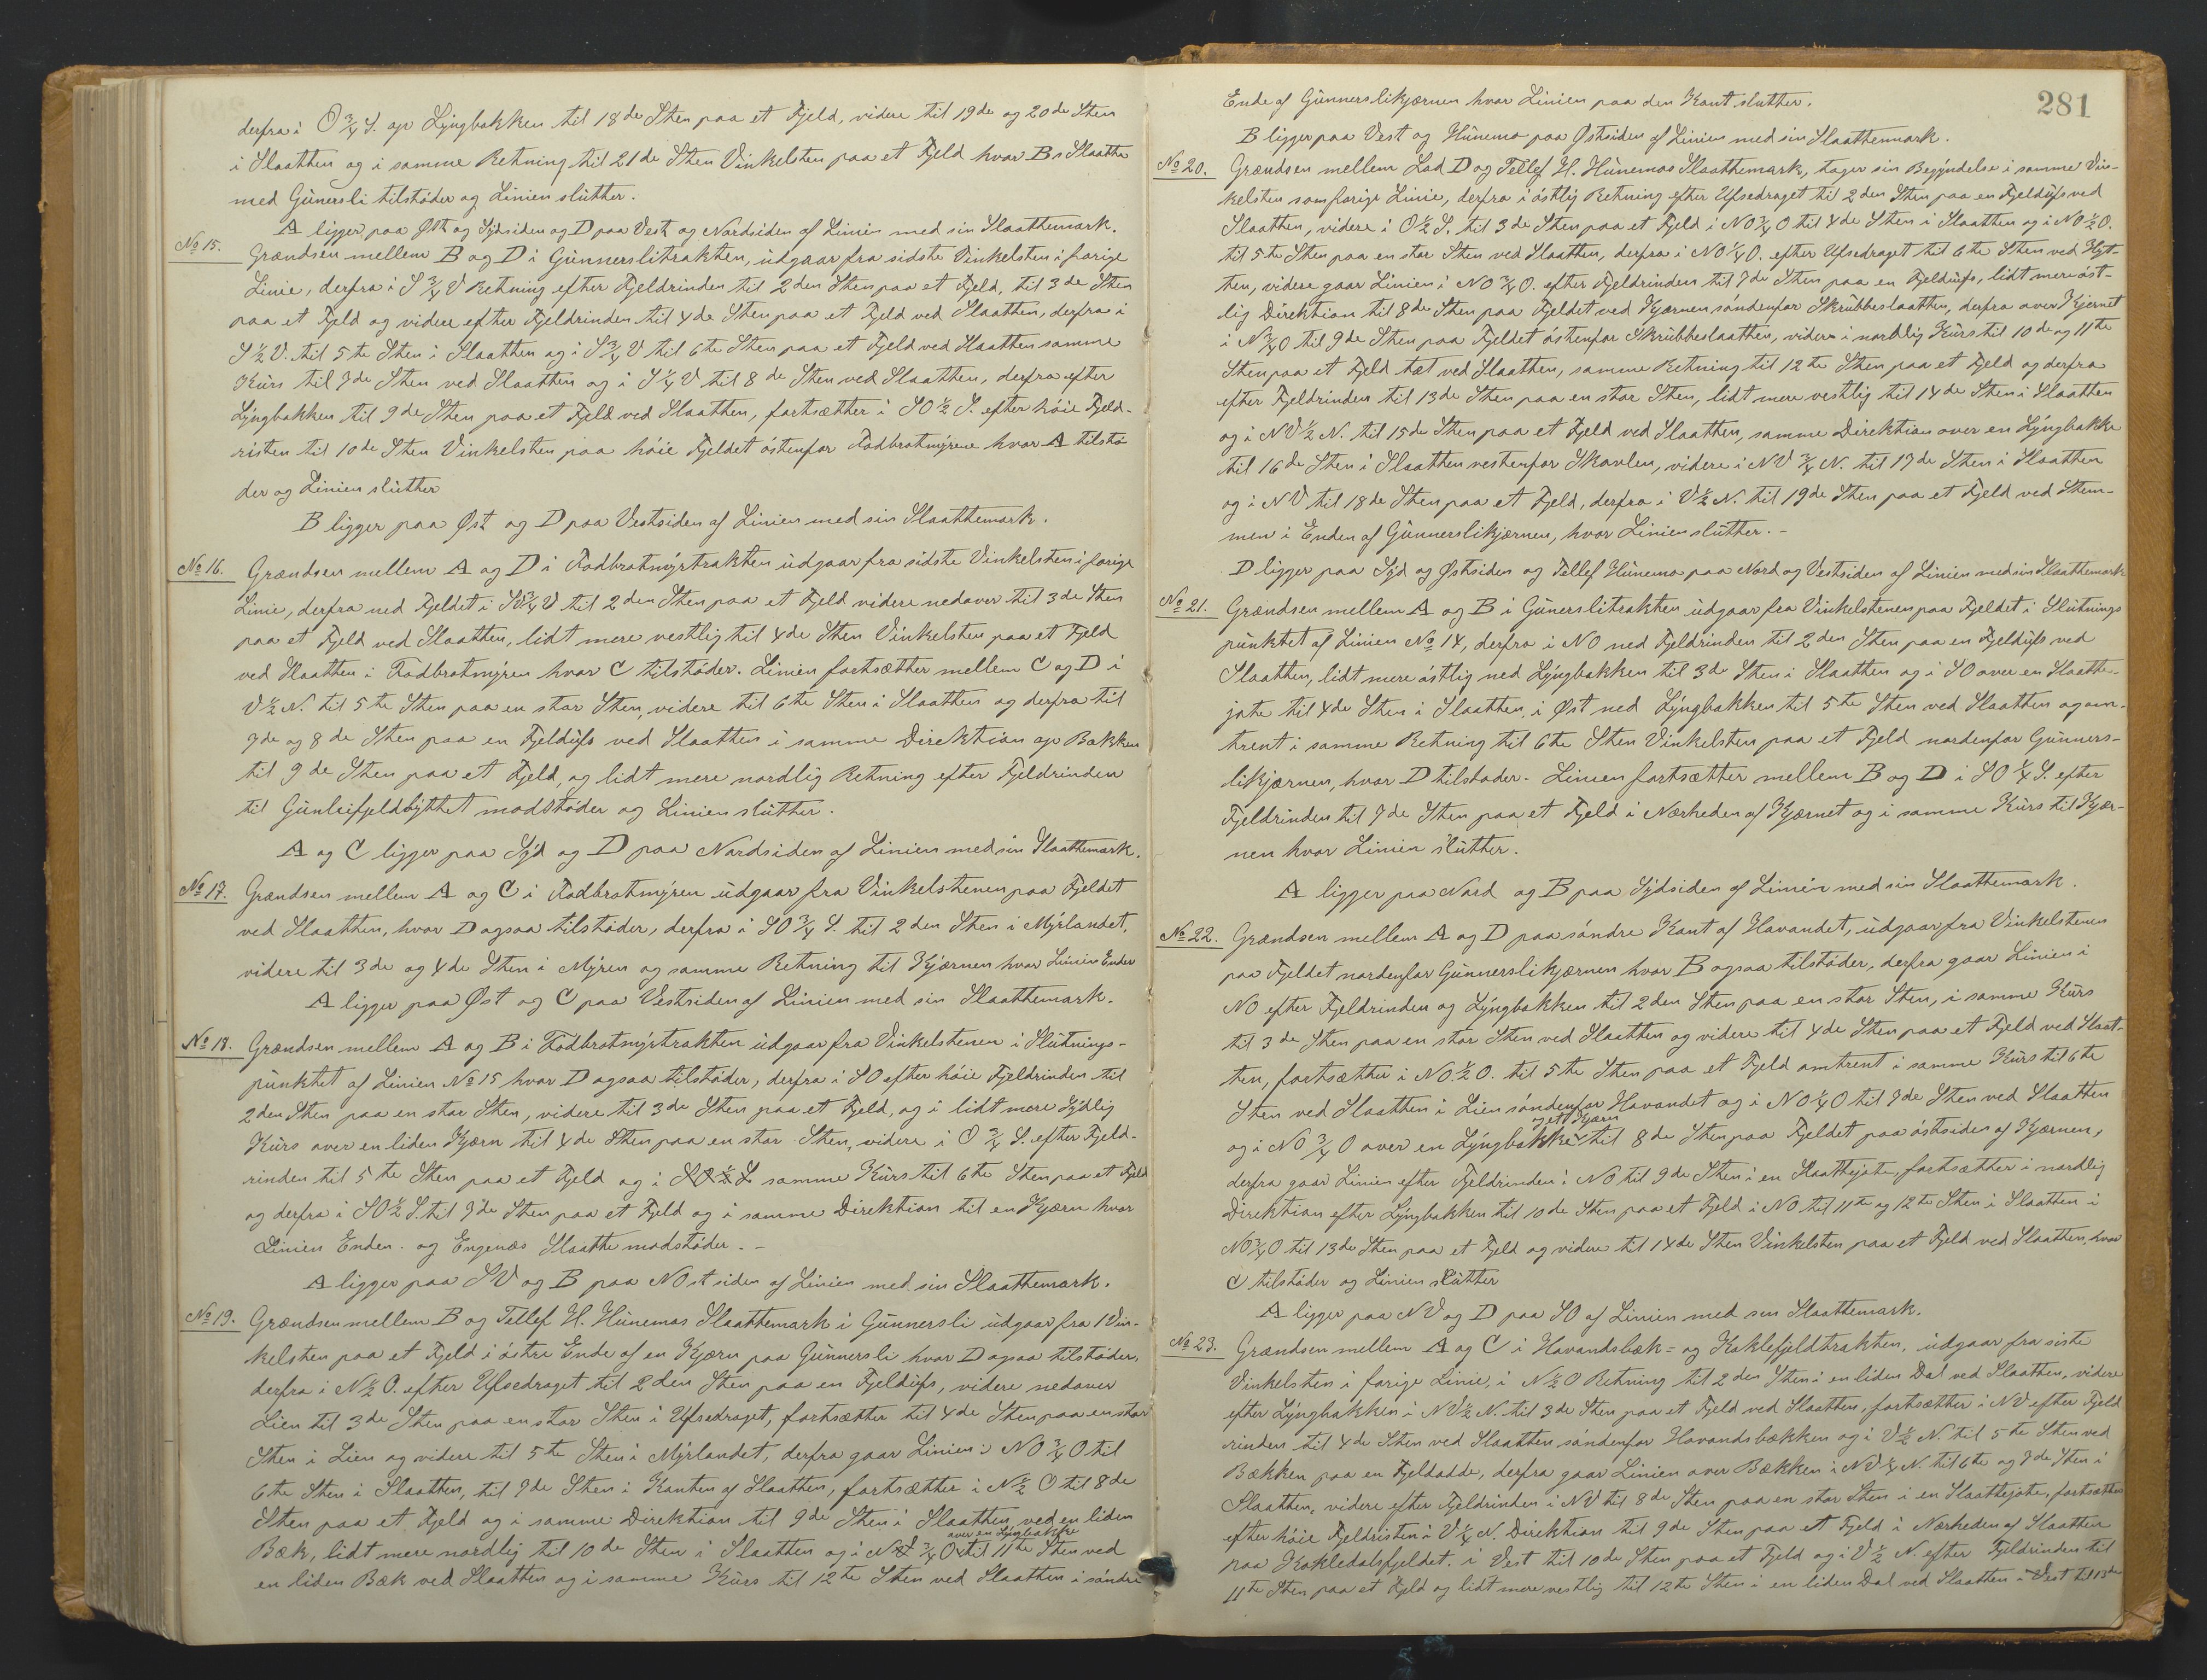 derfra i O 3/4 S. op Lyngbakken til 18de Sten paa et Fjeld, videre til 19de og 20de Sten
i Slaatten og i samme Retning til 21de Sten Vinkelsten paa et Fjeld hvor Bs Slaatte
med Gunersli tilstøder og Linien slutter.
A ligger paa Øst og Sydsiden og D paa Vest og Nordsiden af Linien med sin Slaattemark.
No 15. Grændsen mellem B og D i Gunnerslitrakten, udgaar fra sidste Vinkelsten i forige
Linie, derfra i S 3/4 V Retning efter Fjeldrinden til 2den Sten paa et Fjeld, til 3de Sten
paa et Fjeld og videre efter Fjeldrinden til 4de Sten paa et Fjeld ved Slaatten, derfra i
S 1/2 V. til 5te Sten i Slaatten og i S 3/4 V til 6te Sten paa et Fjeld ved Slaatten samme
Kurs til 7de Sten ved Slaatten og i S 1/4 V til 8de Sten ved Slaatten, derfra efter
Lyngbakken til 9de Sten paa et Fjeld ved Slaatten, fortsætter i SO 1/2 S. efter høie Fjeld-
risten til 10de Sten Vinkelsten paa høie Fjeldet østenfor Fodbrotmyrene hvor A tilstø
der og Linien slutter
B ligger paa Øst og D paa Vestsiden af Linien med sin Slaattemark.
No 16. Grændsen mellem A og D i Fodbrotmyrtrakten udgaar fra sidste Vinkelsten i forige
Linie, derfra ned Fjeldet i SV 3/4 V til 2den Sten paa et Fjeld videre nedover til 3de Sten
paa et Fjeld ved Slaatten, lidt mere vestlig til 4de Sten Vinkelsten paa et Fjeld
ved Slaatten i Fodbrotmyren hvor C tilstøder. Linien fortsætter mellem C og D i
V 1/2 N. til 5te Sten paa en stor Sten, videre til 6te Sten i Slaatten og derfra til
7de og 8de Sten paa en Fjeldufs ved Slaatten i samme Direktion op Bakken
til 9de Sten paa et Fjeld, og lidt mere nordlig Retning efter Fjeldrinden
til Gunleifjeldbyttet modstøder og Linien slutter.
A og C ligger paa Syd og D paa Nordsiden af Linien med sin Slaattemark.
No 17. Grændsen mellem A og C i Fodbrotmyren udgaar fra Vinkelstenen paa Fjeldet
ved Slaatten, hvor D ogsaa tilstøder, derfra i SO 3/4 S. til 2den Sten i Myrlandet,
videre til 3de og 4de Sten i Myren og samme Retning til Kjærnen hvor Linien Ender
A ligger paa Øst og C paa Vestsiden af Linien med sin Slaattemark.
No 18. Grændsen mellem A og B i Fodbrotmyrtrakten udgaar fra Vinkelstenen i Slutnings-
punktet af Linien No 15 hvor D ogsaa tilstøder, derfra i SO efter høie Fjeldrinden til
2den Sten paa en stor Sten, videre til 3de Sten paa et Fjeld, og i lidt mere Sydlig
Kurs over en liden Kjærn til 4de Sten paa en stor Sten, videre i O 3/4 S. efter Fjeld-
rinden til 5te Sten paa et Fjeld og i SO 1/2 S samme Kurs til 6te Sten paa et Fjeld
og derfra i SO 1/2 S. til 7de Sten paa et Fjeld og i samme Direktion til en Kjærn hvor
Linien Enden. og Engenæs Slaatte modstøder. -
A ligger paa SV og B paa NOst siden af Linien med sin Slaattemark.
No 19. Grændsen mellem B og Tellef H. Hunemos Slaattemark i Gunnersli udgaar fra 1 Vin-
kelsten paa et Fjeld i østre Ende af en Kjærn paa Gunnersli hvor D ogsaa tilstøder,
derfra i N 1/2 O. efter Ufsedraget til 2den Sten paa en Fjeldufs, videre nedover
Lien til 3de Sten paa en stor Sten i Ufsedraget, fortsætter til 4de Sten paa en stor
Sten i Lien og videre til 5te Sten i Myrlandet, derfra gaar Linien i NO 3/4 O til
6te Sten i Slaatten, til 7de Sten i Kanten af Slaatten, fortsætter i N 1/2 O til 8de
Sten paa et Fjeld og i samme Direktion til 9de Sten i Slaatten ved en liden
over en Lyngbakke
Bæk, lidt mere nordlig til 10de Sten i Slaatten og i N 3/4 O til 11te Sten ved
en liden Bæk ved Slaatten og i samme Kurs til 12te Sten ved Slaatten i søndre
281
Ende af Gunnerslikjærnen hvor Linien paa den Kant slutter.
B ligger paa Vest og Hunemo paa Østsiden af Linien med sin Slaattemark.
No 20. Grændsen mellem Lod D og Tellef H. Hunemos Slaattemark, tager sin Begyndelse i samme Vin-
kelsten som forige Linie, derfra i østlig Retning efter Ufsedraget til 2den Sten paa en Fjeldufs ved
Slaatten, videre i O 1/2 S. til 3de Sten paa et Fjeld i NO 3/4 O til 4de Sten i Slaatten og i NO 1/2 O.
til 5te Sten paa en stor Sten ved Slaatten, derfra i NO 1/4 O. efter Ufsedraget til 6te Sten ved Hyt-
ten, videre gaar Linien i NO 3/4 O. efter Fjeldrinden til 7de Sten paa en Fjeldufs, lidt mere øst-
lig Direktion til 8de Sten paa Fjeldet ved Kjærnen søndenfor Skrubbeslaatten, derfra over Kjernet
i N 3/4 O til 9de Sten paa Fjeldet østenfor Skrubbeslaatten, videre i nordlig Kurs til 10de og 11te
Sten paa et Fjeld tæt ved Slaatten, samme Retning til 12te Sten paa et Fjeld og derfra
efter Fjeldrinden til 13de Sten paa en stor Sten, lidt mere vestlig til 14de Sten i Slaatten
og i NV 1/2 N. til 15de Sten paa et Fjeld ved Slaatten, samme Direktion over en Lyngbakke
til 16de Sten i Slaatten vestenfor Skovlen, videre i NV 3/4 N. til 17de Sten i Slaatten
og i NV til 18de Sten paa et Fjeld, derfra i V 1/2 N. til 19de Sten paa et Fjeld ved Stem-
men i Enden af Gunnerslikjærnen, hvor Linien slutter. -
D ligger paa Syd og Østsiden og Tellef Hunemo paa Nord og Vestsiden af Linien med sin Slaattemark
No 21. Grændsen mellem A og B i Gunerslitrakten udgaar fra Vinkelstenen paa Fjeldet i Slutnings
punktet af Linien No 14, derfra i NO ned Fjeldrinden til 2den Sten paa en Fjeldufs ved
Slaatten, lidt mere østlig ned Lyngbakken til 3de Sten i Slaatten og i SO over en Slaatte-
jote til 4de Sten i Slaatten, i Øst ned Lyngbakken til 5te Sten ved Slaatten og om-
trent i samme Retning til 6te Sten Vinkelsten paa et Fjeld nordenfor Gunners-
likjærnen, hvor D tilstøder. Linien fortsætter mellem B og D i SO 1/4 S. efter
Fjeldrinden til 7de Sten paa et Fjeld i Nærheden af Kjærnet og i samme Kurs til Kjær-
nen hvor Linien slutter.
A ligger paa Nord og B paa Sydsiden af Linien med sin Slaattemark.
No 22. Grændsen mellem A og D paa søndre Kant af Havandet, udgaar fra Vinkelstenen
paa Fjeldet nordenfor Gunnerslikjærnen hvor B ogsaa tilstøder, derfra gaar Linien i
NO efter Fjeldrinden og Lyngbakken til 2den Sten paa en stor Sten, i samme Kurs
til 3de Sten paa en stor Sten ved Slaatten og videre til 4de Sten paa et Fjeld ved Slaat-
ten, fortsætter i NO. 1/2 O. til 5te Sten paa et Fjeld omtrent i samme Kurs til 6te
Sten ved Slaatten i Lien søndenfor Havandet og i NO 1/4 O til 7de Sten ved Slaatten
og et Kjærn
og i NO 3/4 O over en Lyngbakke til 8de Sten paa Fjeldet paa østsiden af Kjærnen,
derfra gaar Linien efter Fjeldrinden i NO til 9de Sten i en Slaattejote, fortsætter i nordlig
Direktion efter Lyngbakken til 10de Sten paa et Fjeld i NO til 11te og 12te Sten i Slaatten i
NO 3/4 O til 13de Sten paa et Fjeld og videre til 14de Sten Vinkelsten paa et Fjeld ved Slaatten, hvor
C tilstøder og Linien slutter
A ligger paa NV og D paa SO af Linien med sin Slaattemark.
No 23. Grændsen mellem A og C i Havandsbæk= og Koklefjeldtrakten, udgaar fra siste
Vinkelsten i forige Linie, i N 1/2 O Retning til 2den Sten i en liden Dal ved Slaatten, videre
efter Lyngbakken i NV 1/2 N. til 3de Sten paa et Fjeld ved Slaatten, fortsætter i NV efter Fjeld
rinden til 4de Sten ved Slaatten søndenfor Havandsbækken og i V 1/2 N. til 5te Sten ved
Bækken paa en Fjeldodde, derfra gaar Linien over Bækken i NV 1/4 N. til 6te og 7de Sten i
Slaatten, videre efter Fjeldrinden i NV til 8de Sten paa en stor Sten i en Slaattejote, fortsætter
efter høie Fjeldristen i V 1/4 N. Direktion til 9de Sten paa et Fjeld i Nærheden af Slaatten
paa Kokledalsfjeldet. i Vest til 10de Sten paa et Fjeld og i V 1/2 N. efter Fjeldrinden til
11te Sten paa et Fjeld og lidt mere vestlig til 12te Sten i en liden Dal ved Slaatten i Vest til 13de